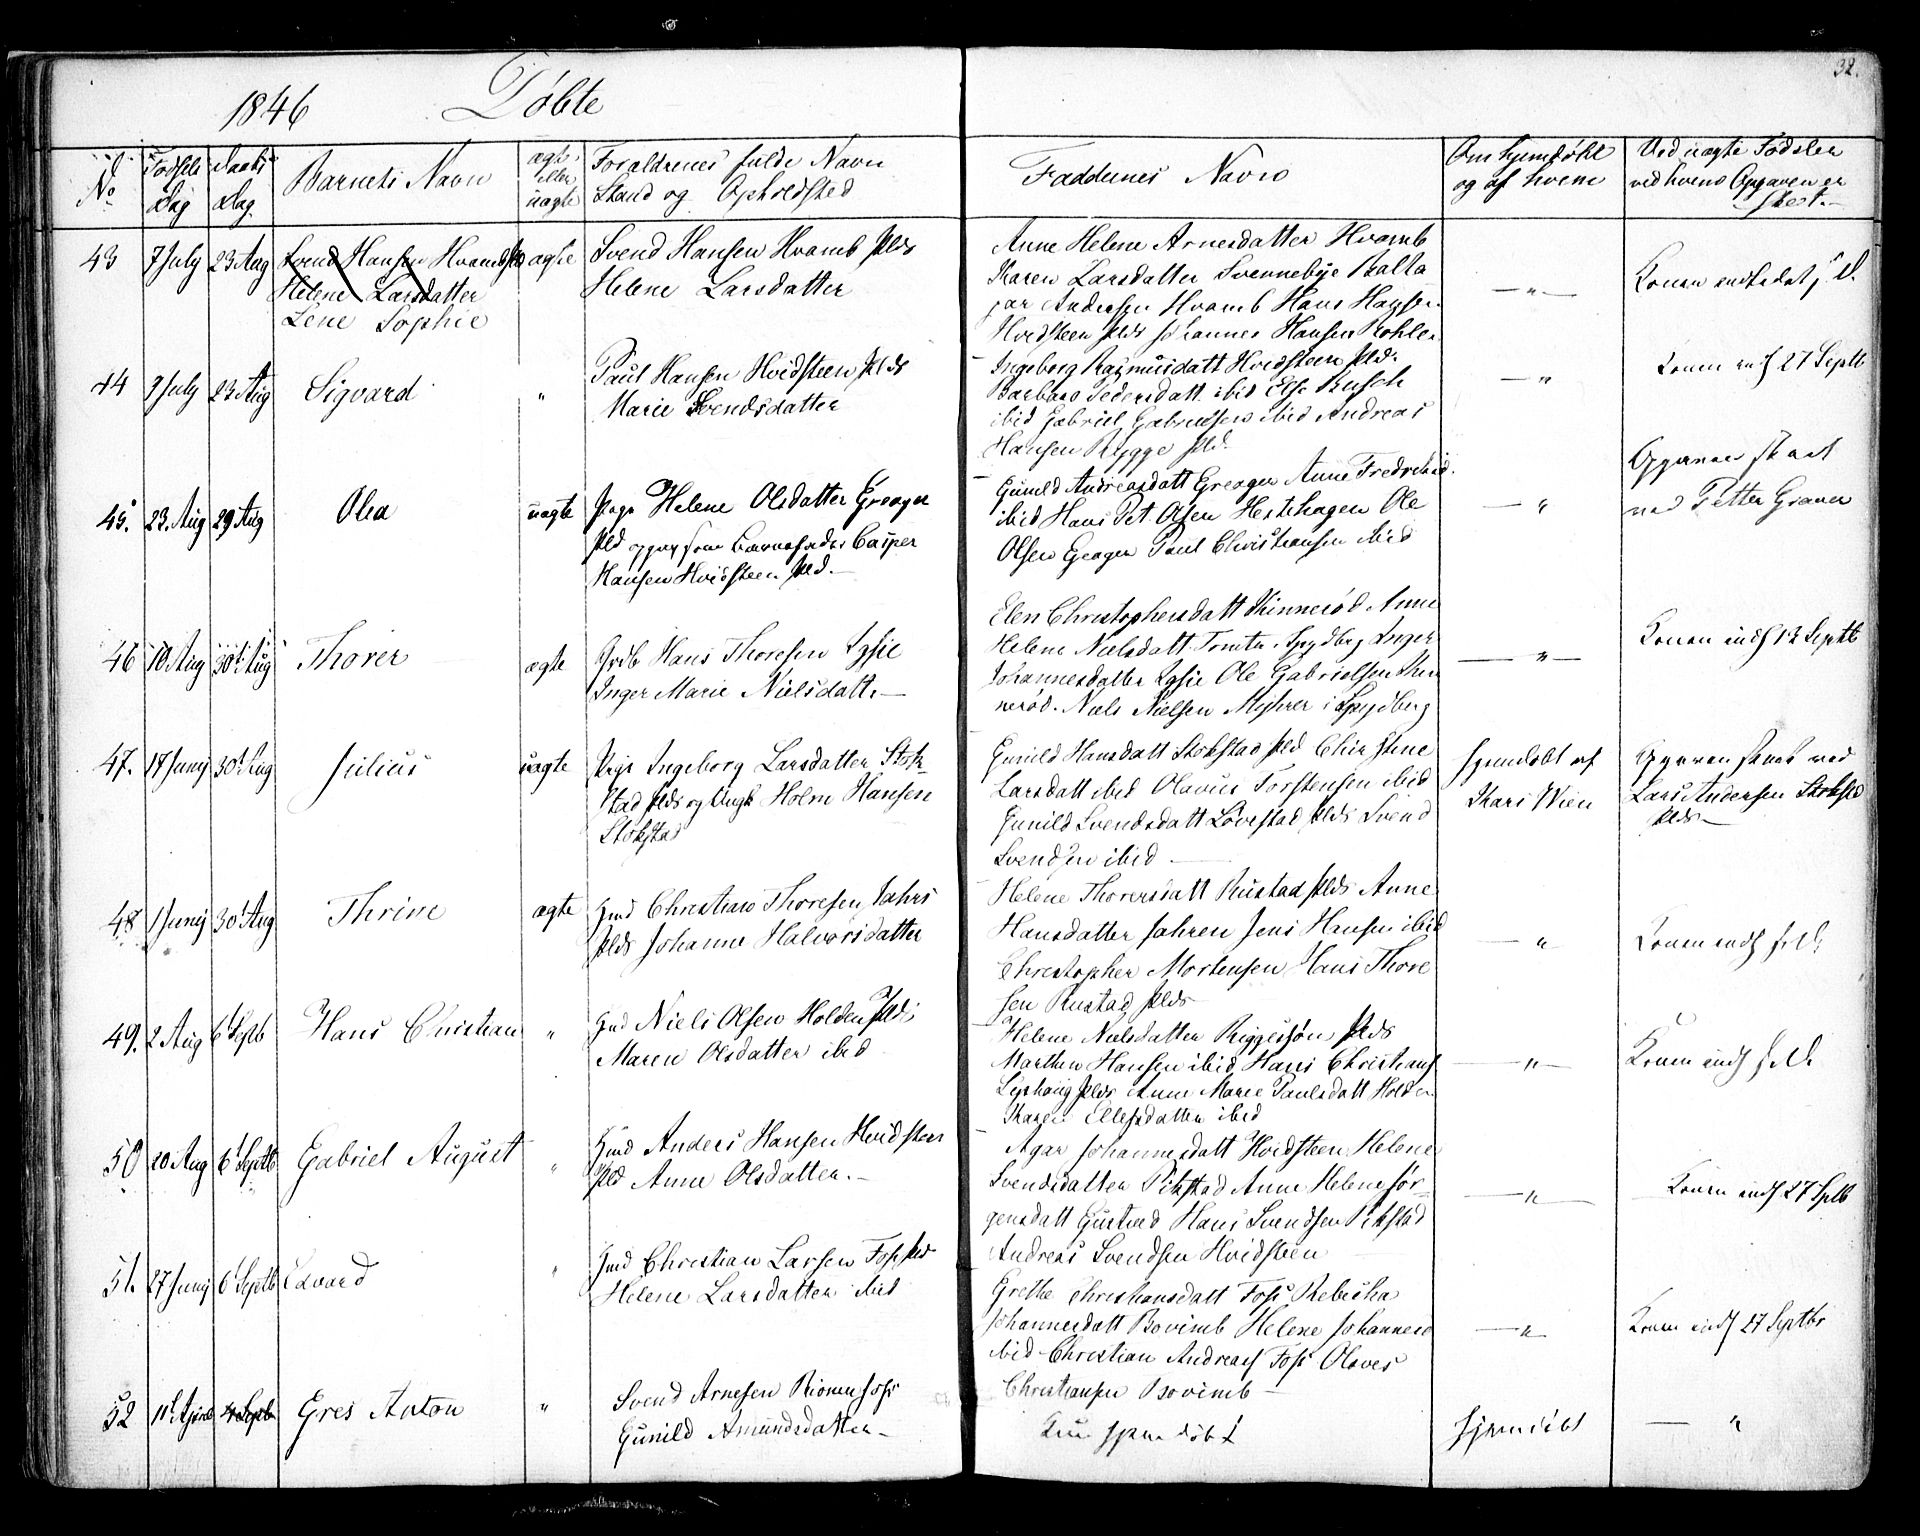 32.
1846 Døbte
No
Fødsels Dag
Daabs Dag
Barnets Navn
ægte eller uægte
Forældrenes fulde Navn
Stand og Opholdsted
Faddernes Navne
Om hjemdøbt
og af hvem
Ved uægte Fødsler
ved hvem Opgaven er
skeet.
43 7 July 23 Aug Svend Hansen Hvamb
Helene Larsdatter
Lene Sophie
ægte
Svend Hansen Hvamb Plds
Helene Larsdatter
Anne Helene Arnesdatter Hvamb
Karen Larsdatter Svennebye Balta
zar Andersen Hvamb Hans Hansen
Hvidsteen Plds Johannes Hansen Kohler
— " —
Konen
44 9 July 23 Aug Sigvard "
Paul Hansen Hvidsteen Plds
Marie Svendsdatter
Ingeborg Rasmusdatt Hvidsteen Pld.
Barbara Pedersdatt ibid Else Busch
ibid Gabriel Gabrielsen ibid Andreas
Hansen Rygge Pld.
— "
Konen indl 27 Septb
45. 23. Aug 29 Aug Olea uægte
Pige Helene Olsdatter Greager
Pld opgav som Barnefader Casper
Hansen Hvidsteen Pld. —
Gunild Andreasdatt Greager Anne Fredrikd.
ibid Hans Pet. Olsen Hestehagen Ole
Olsen Greager Paul Christiansen ibid
— "
Opgaven skeet
ved Petter Graner
46 10 Aug 30t Aug Thorer ægte
Grdb Hans Thoresen Lysie
Inger Marie Nielsdatt. —
Elen Christophersdatt Skinnerød Anne
Helene Nielsdatt Tomter i Spydberg Inger
Johannesdatter Lysie Ole Gabrielsen Skin
nerød. Niels Nielsen Myhrer i Spydberg
— " —
Konen indl 13 Septb
47. 17 Juny 30t Aug Julius uægte
Pige Ingeborg Larsdatter Stok-
stad Plds og Ungk Holm Hansen
Stokstad
Gunild Hansdatt Stokstad Pld Christine
Larsdatt ibid Olavus Torstensen ibid
Gunild Svendsdatt Løvestad Plds Svend
Svendsen ibid —
hjemdøbt af
Kari Wien
Opgaven skeet ved
Lars Andersen Stokstad
Plds —
48 1 Junij 30t Aug Thrine ægte
Hmd Christian Thoresen Jahrs
Plds Johanne Halvorsdatter
Helene Thorersdatt Rustad Plds Anne
Hansdatter Jahren Jens Hansen ibid
Christopher Mortensen Hans Thore
sen Rustad Plds
— "
Konen indl
49. 2 Aug 6t Septb Hans Christian "
Hmd Niels Olsen Holden Plds
Maren Olsdatter ibid
Helene Nielsdatter Riggesøn Plds
Marthen Hansen ibid Hans Christians
Plds Anne Marie Paulsdatt Holden
Karen Ellefsdatter ibid
— " —
Konen indl
50 20 Aug 6t Septb Gabriel August "
Hmd Anders Hansen Hvidsteen
Pld Anne Olsdatter. —
Agar Johannesdatt Hvidsteen Helene
Svendsdatter Pikstad Anne Helene Jør-
gensdatt Hans Svendsen Pikstad
Andreas Svendsen Hvidsteen
— " —
Konen indl 27 Septb
51. 27 Juny 6t Septb Edvard "
Hmd Christian Larsen Foss Plds
Helene Larsdatter ibid
Grethe Christiansdatt Foss Rebekka
Johannesdatt Bovimb Helene Johannesd
ibid Christian Andreas Foss Olaves
Christiansen Bovimb —
— "
Konen indl 27 Septbr
52 11t April 4 Septb Gres Anton "
Svend Arnesen
Gunild Amundsdatter —
Kun hjemdøbt
hjemdøbt
— "